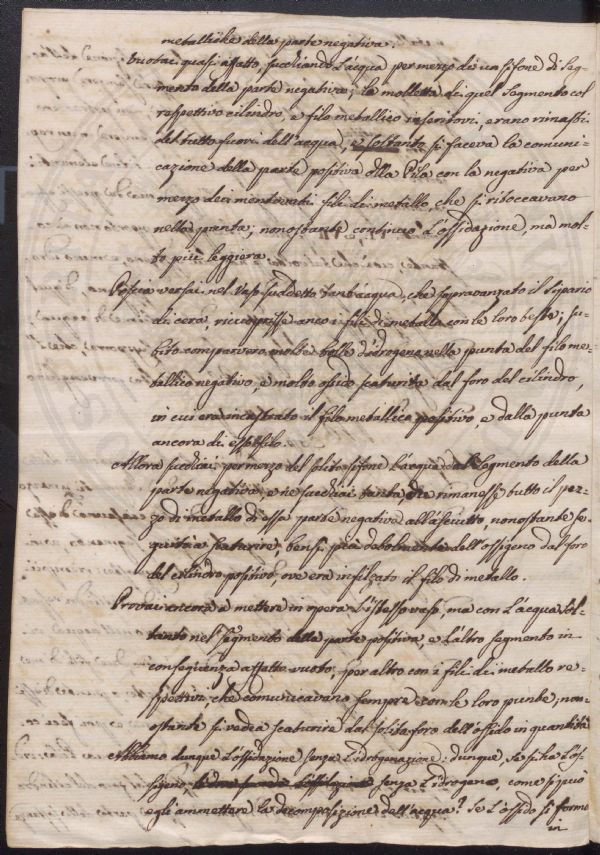 metalliche della parte negativa.
Vuotai quasi affatto, succhiando l'acqua per mezzo di un sifone di Seg-
mento della parte negativa; la molletta di quel Segmento col
rispettivo cilindro, e filo metallico inseritovi, erano rimasti
del tutto fuori dell'acqua, e soltanto si faceva la comuni-
cazione della parte positiva della Pila con la negativa per
mezzo dei mentovati fili di metallo, che si ritoccavano
nella punta; nonostante continuò l'ossidazione, ma mol-
to più leggiera.
Poscia versai nel vaso suddetto tant'acqua, che sopravanzato il Sipario
di cera, ricuoprisse anco i fili di metallo con le loro teste; su-
bito comparvero molte bolle d'idrogeno nella punta del filo me-
tallico negativo, e molto ossido scaturite dal foro del cilindro,
in cui era incastrato il filo metallico positivo, e dalla punta
ancora di esso filo.
Allora succhiai per mezzo del solito sifone l'acqua dal Segmento della
parte negativa, e ne succhiai tanta che rimanesse tutto il pez-
zo di metallo di essa parte negativa all'asciutto, nonostante se-
guitò a scaturire, bensì più debolmente dell'ossigeno dal foro
del cilindro positivo, ove era infilzato il filo di metallo.
Provai ancora a mettere in opera l'istesso vaso, ma con l'acqua sol-
tanto nel Segmento della parte positiva, e l'altro segmento in
conseguenza affatto vuoto, per altro con i fili di metallo re-
spettivi, che comunicavano sempre con le loro punte; non-
ostante si vedea scaturire dal solito foro dell'ossido in quantità
Abbiamo dunque l'ossidazione senza l'idrogenazione: dunque, se si ha l'os-
sigeno senza l'idrogeno, come si può
egli ammettere la decomposizione dell'acqua? Se l'ossido si forma
in